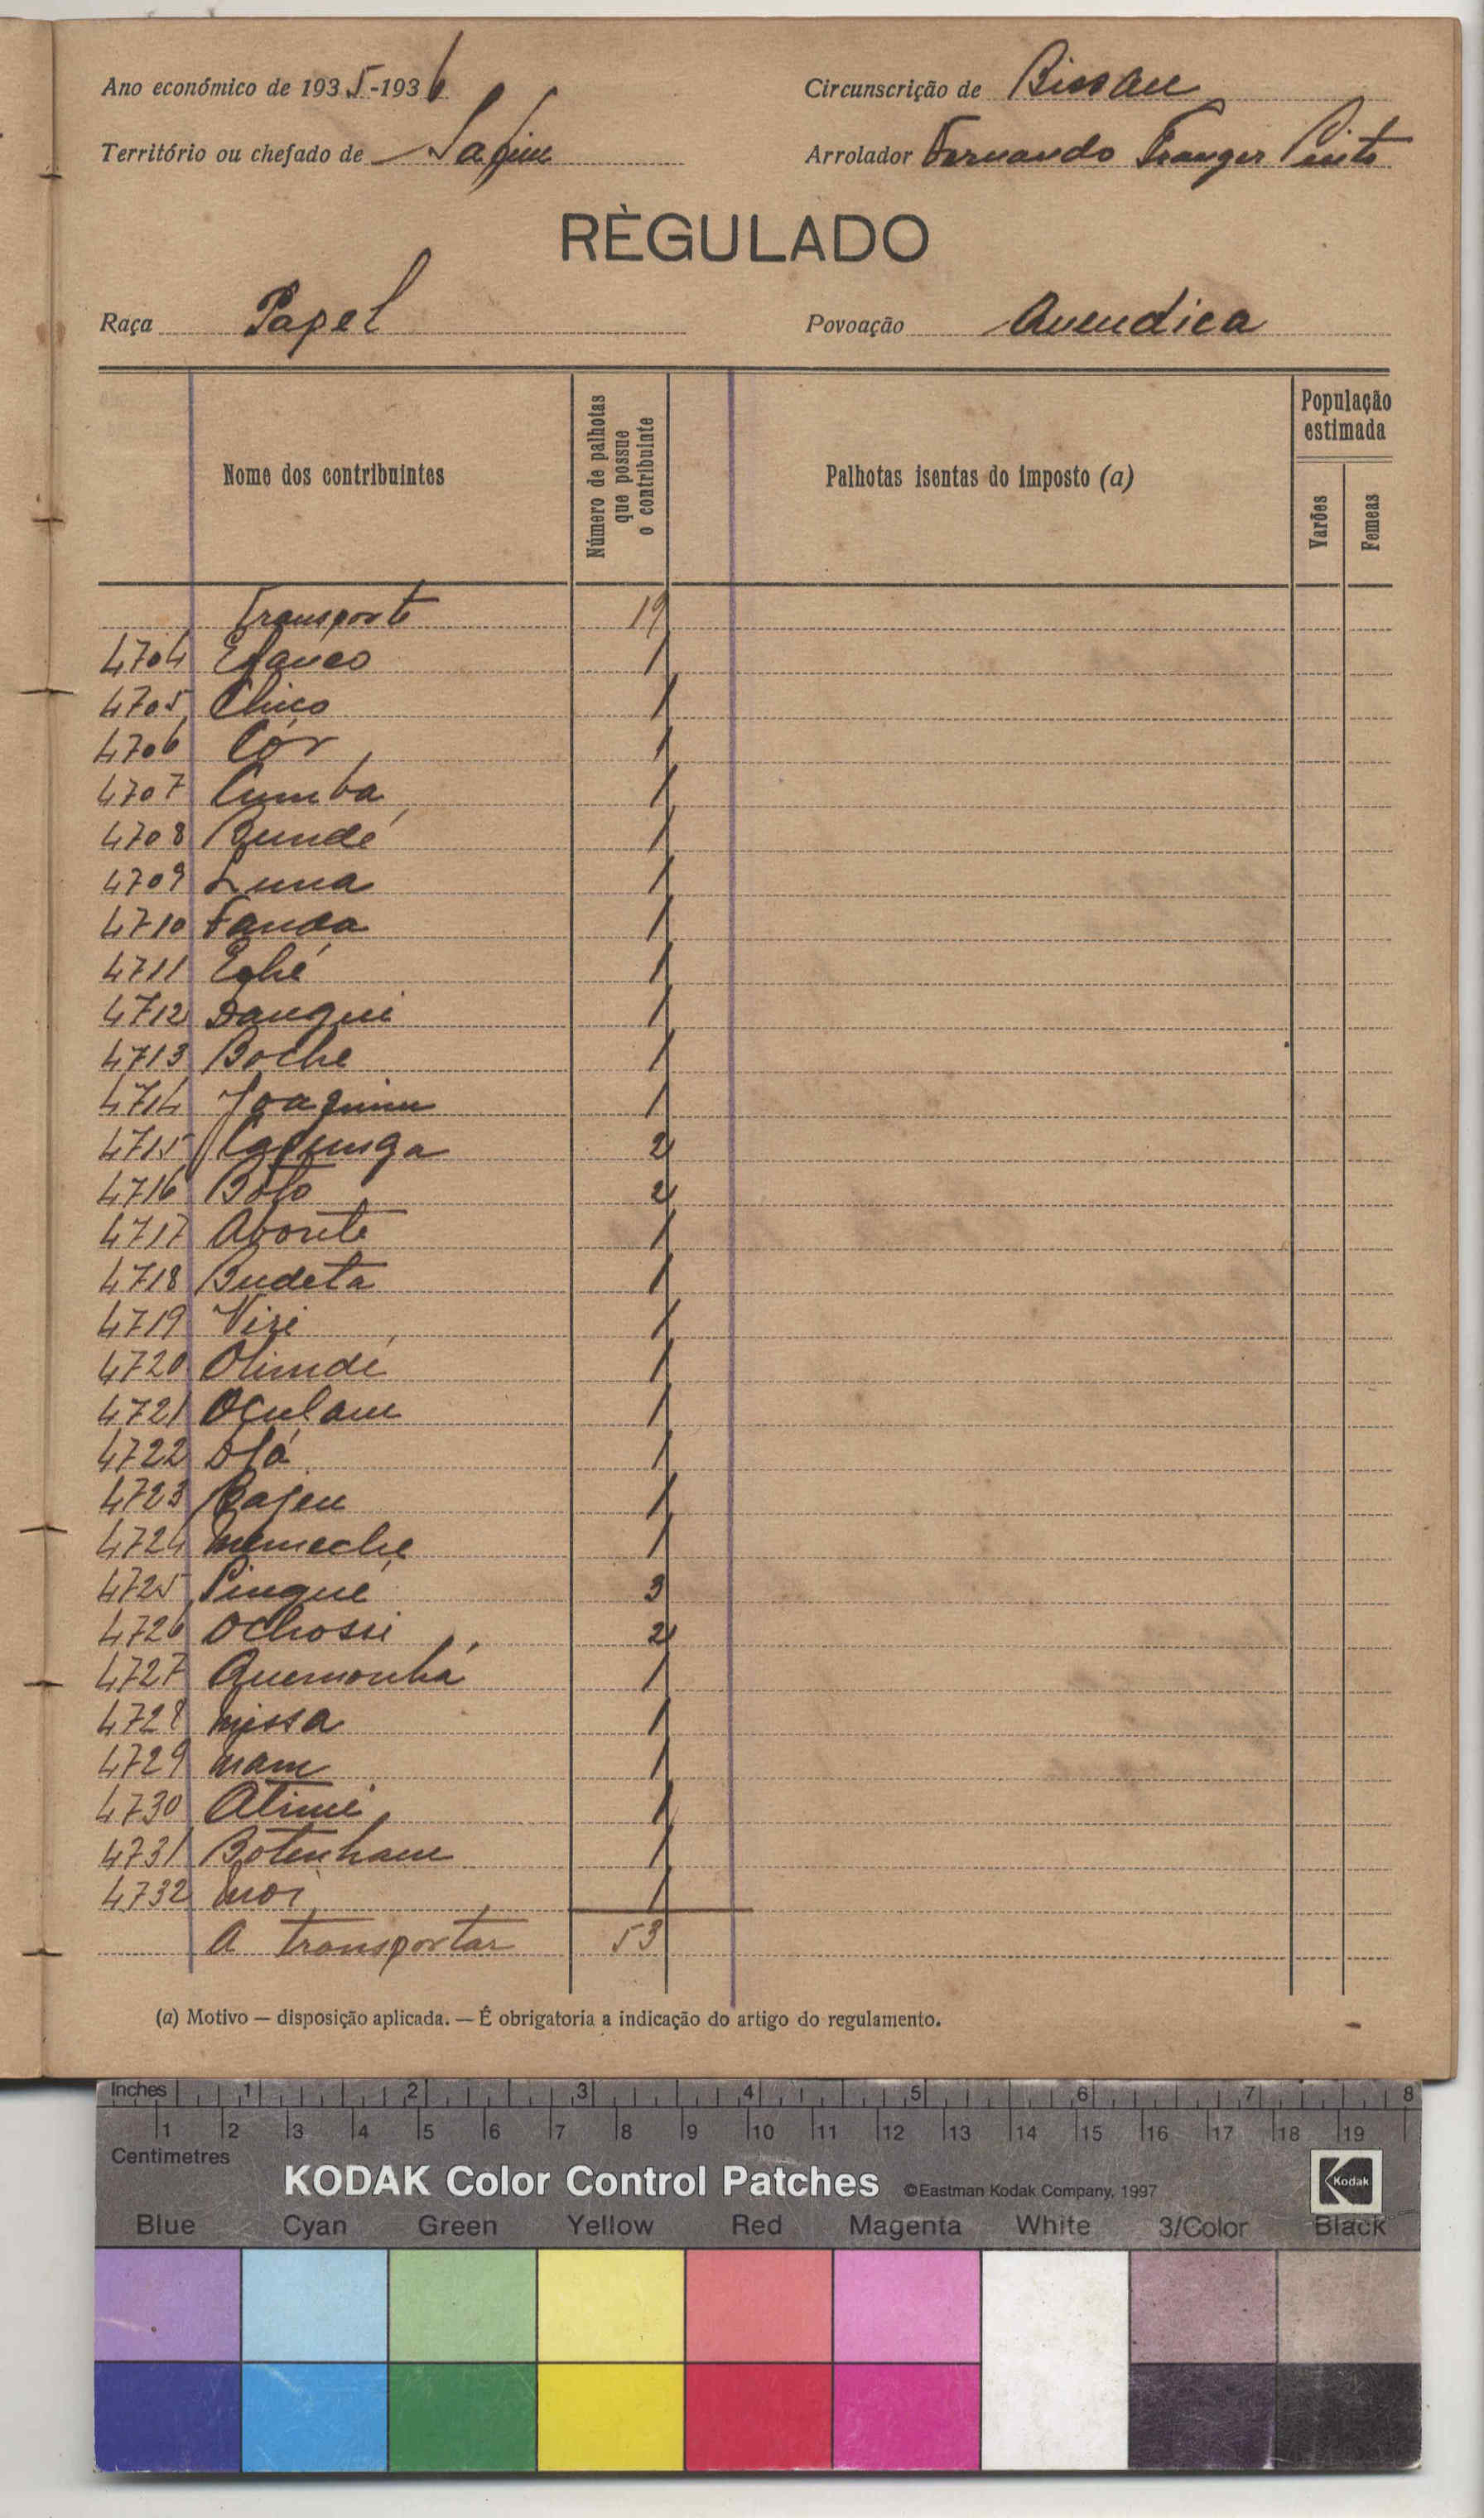 Ano económico de 1935-1936 Circunscrição de Bissau
Território ou chefado de Safim Arrolador Fernando Franger Pinto
RÈGULADO
Raça Papel Povoação Quendica
Nome dos contribuintes
Número de palhotas que possue o contribuinte
Palhotas isentas do imposto (a)
População estimada
Varões
Femeas
Transporte 19
4704 Efanco 1
4705 Chico 1
4706 Cór 1
4707 Cumba 1
4708 Bundé 1
4709 Luna 1
4710 Fanda 1
4711 Eghé 1
4712 Dangui 1
4713 Boche 1
4714 Joaquim 1
4715 Capunga 2
4716 Bóto 2
4717 Aboute 1
4718 Budeta 1
4719 Vizi 1
4720 Olimdé 1
4721 Oçulam 1
4722 Ofá 1
4723 Bajeu 1
4724 Memeche 1
4725 Pingué 3
4726 Ochossi 2
4727 Quemonhá 1
4728 Missa 1
4729 Mam 1
4730 Atimé 1
4731 Botenham 1
4732 Moi 1
A transportar 53
(a) Motivo — disposição aplicada. — É obrigatoria a indicação do artigo do regulamento.
Inches 1 2 3 4 5 6 7 8
1 2 3 4 5 6 7 8 9 10 11 12 13 14 15 16 17 18 19
Centimetres
KODAK Color Control Patches ©Eastman Kodak Company, 1997 Kodak
Blue Cyan Green Yellow Red Magenta White 3/Color Black